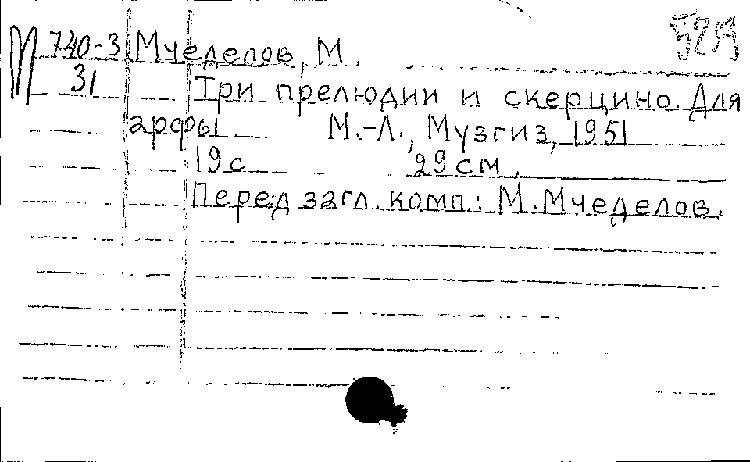 М 740-3 Мчеделов, М.
31 Три прелюдии и скерцино. Для
арфы М.-Л., Музгиз, 1951
19 с 29 см.
Перед загл. комп.: М. Мчеделов.